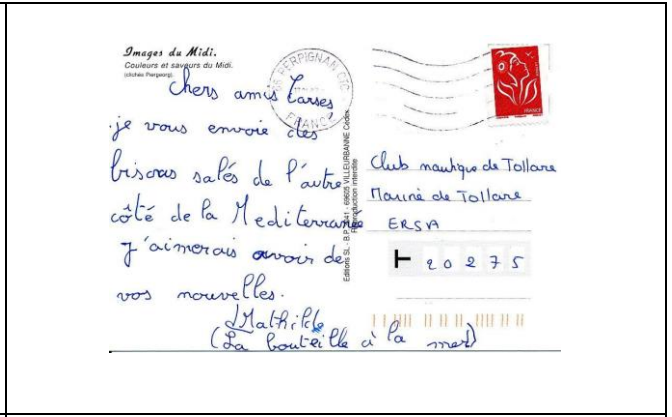 Images du Midi.
Couleurs et saveurs du Midi.
(clichés Piergeorg).
Chers amis Corses
je vous envoie des
bisous salés de l'autre
côté de la Mediterranée
J'aimerais avoir de
vos nouvelles.
Mathilde
(La bouteille à la mer)
66 PERPIGNAN CTC
FRANCE
Editions SL - B.P. - 69605 VILLEURBANNE Cedex
Reproduction interdite
FRANCE
Club nautique de Tollare
Marine de Tollare
ERSA
T 20275